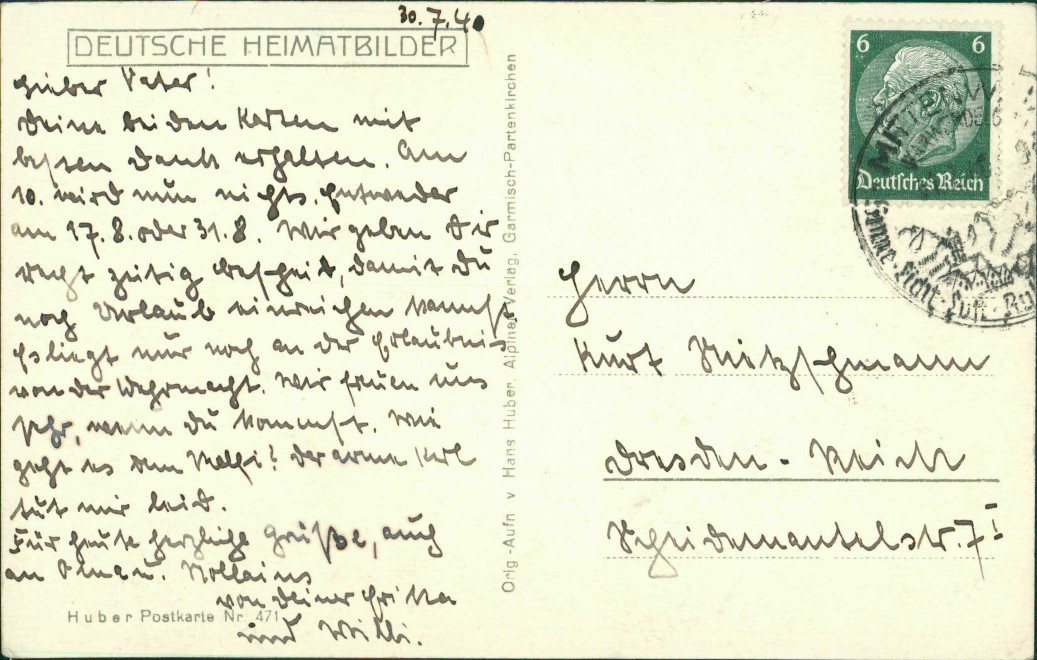 30.7.40
DEUTSCHE HEIMATBILDER
Lieber Vater!
Deine beiden Karten mit
besten Dank erhalten. Am
10. wird nun nichts. Entweder
am 17.8. oder 31.8. Wir geben Dir
recht zeitig Bescheid, damit Du
noch Urlaub einreichen kannst.
Es liegt nur noch an der Erlaubnis
von der Wehrmacht. Wir freuen uns
sehr, wenn Du kommst. Wie
geht es dem? Der arme Kerl
tut mir leid.
Für heute herzliche Grüße, auch
an Oma u.
von Deiner Erika
und Willi.
Huber Postkarte Nr. 471
Orig.-Aufn v Hans Huber, Alpiner Verlag, Garmisch-Partenkirchen
6 6
Deutsches Reich
Sonne · Licht · Luft
Herrn
Kurt Nitzschmann
Dresden-
Scheidemantelstr. 7 I